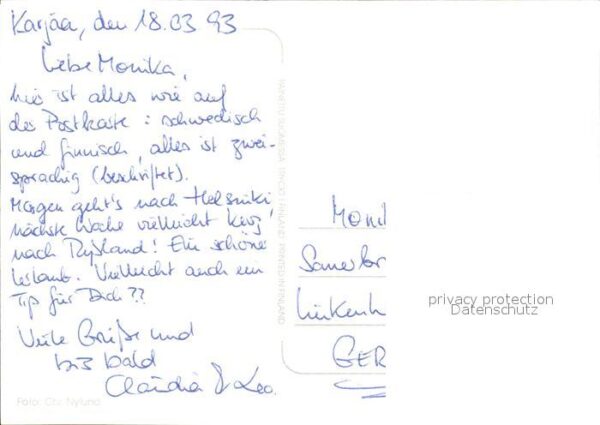 Karjaa, den 18.03 93
Liebe Monika,
hier ist alles wie auf
der Postkarte : schwedisch
und finnisch, alles ist zwei-
sprachig (beschriftet).
Morgen geht's nach Helsinki,
nächste Woche vielleicht kurz
nach Rußland! Ein schöner
Urlaub. Vielleicht auch ein
Tip für Dich??
Viele Grüße und
bis bald
Claudia & Leo.
Foto: Chr Nylund
PRINTED IN FINLAND
Moni
Sauerbr
GER
privacy protection
Datenschutz